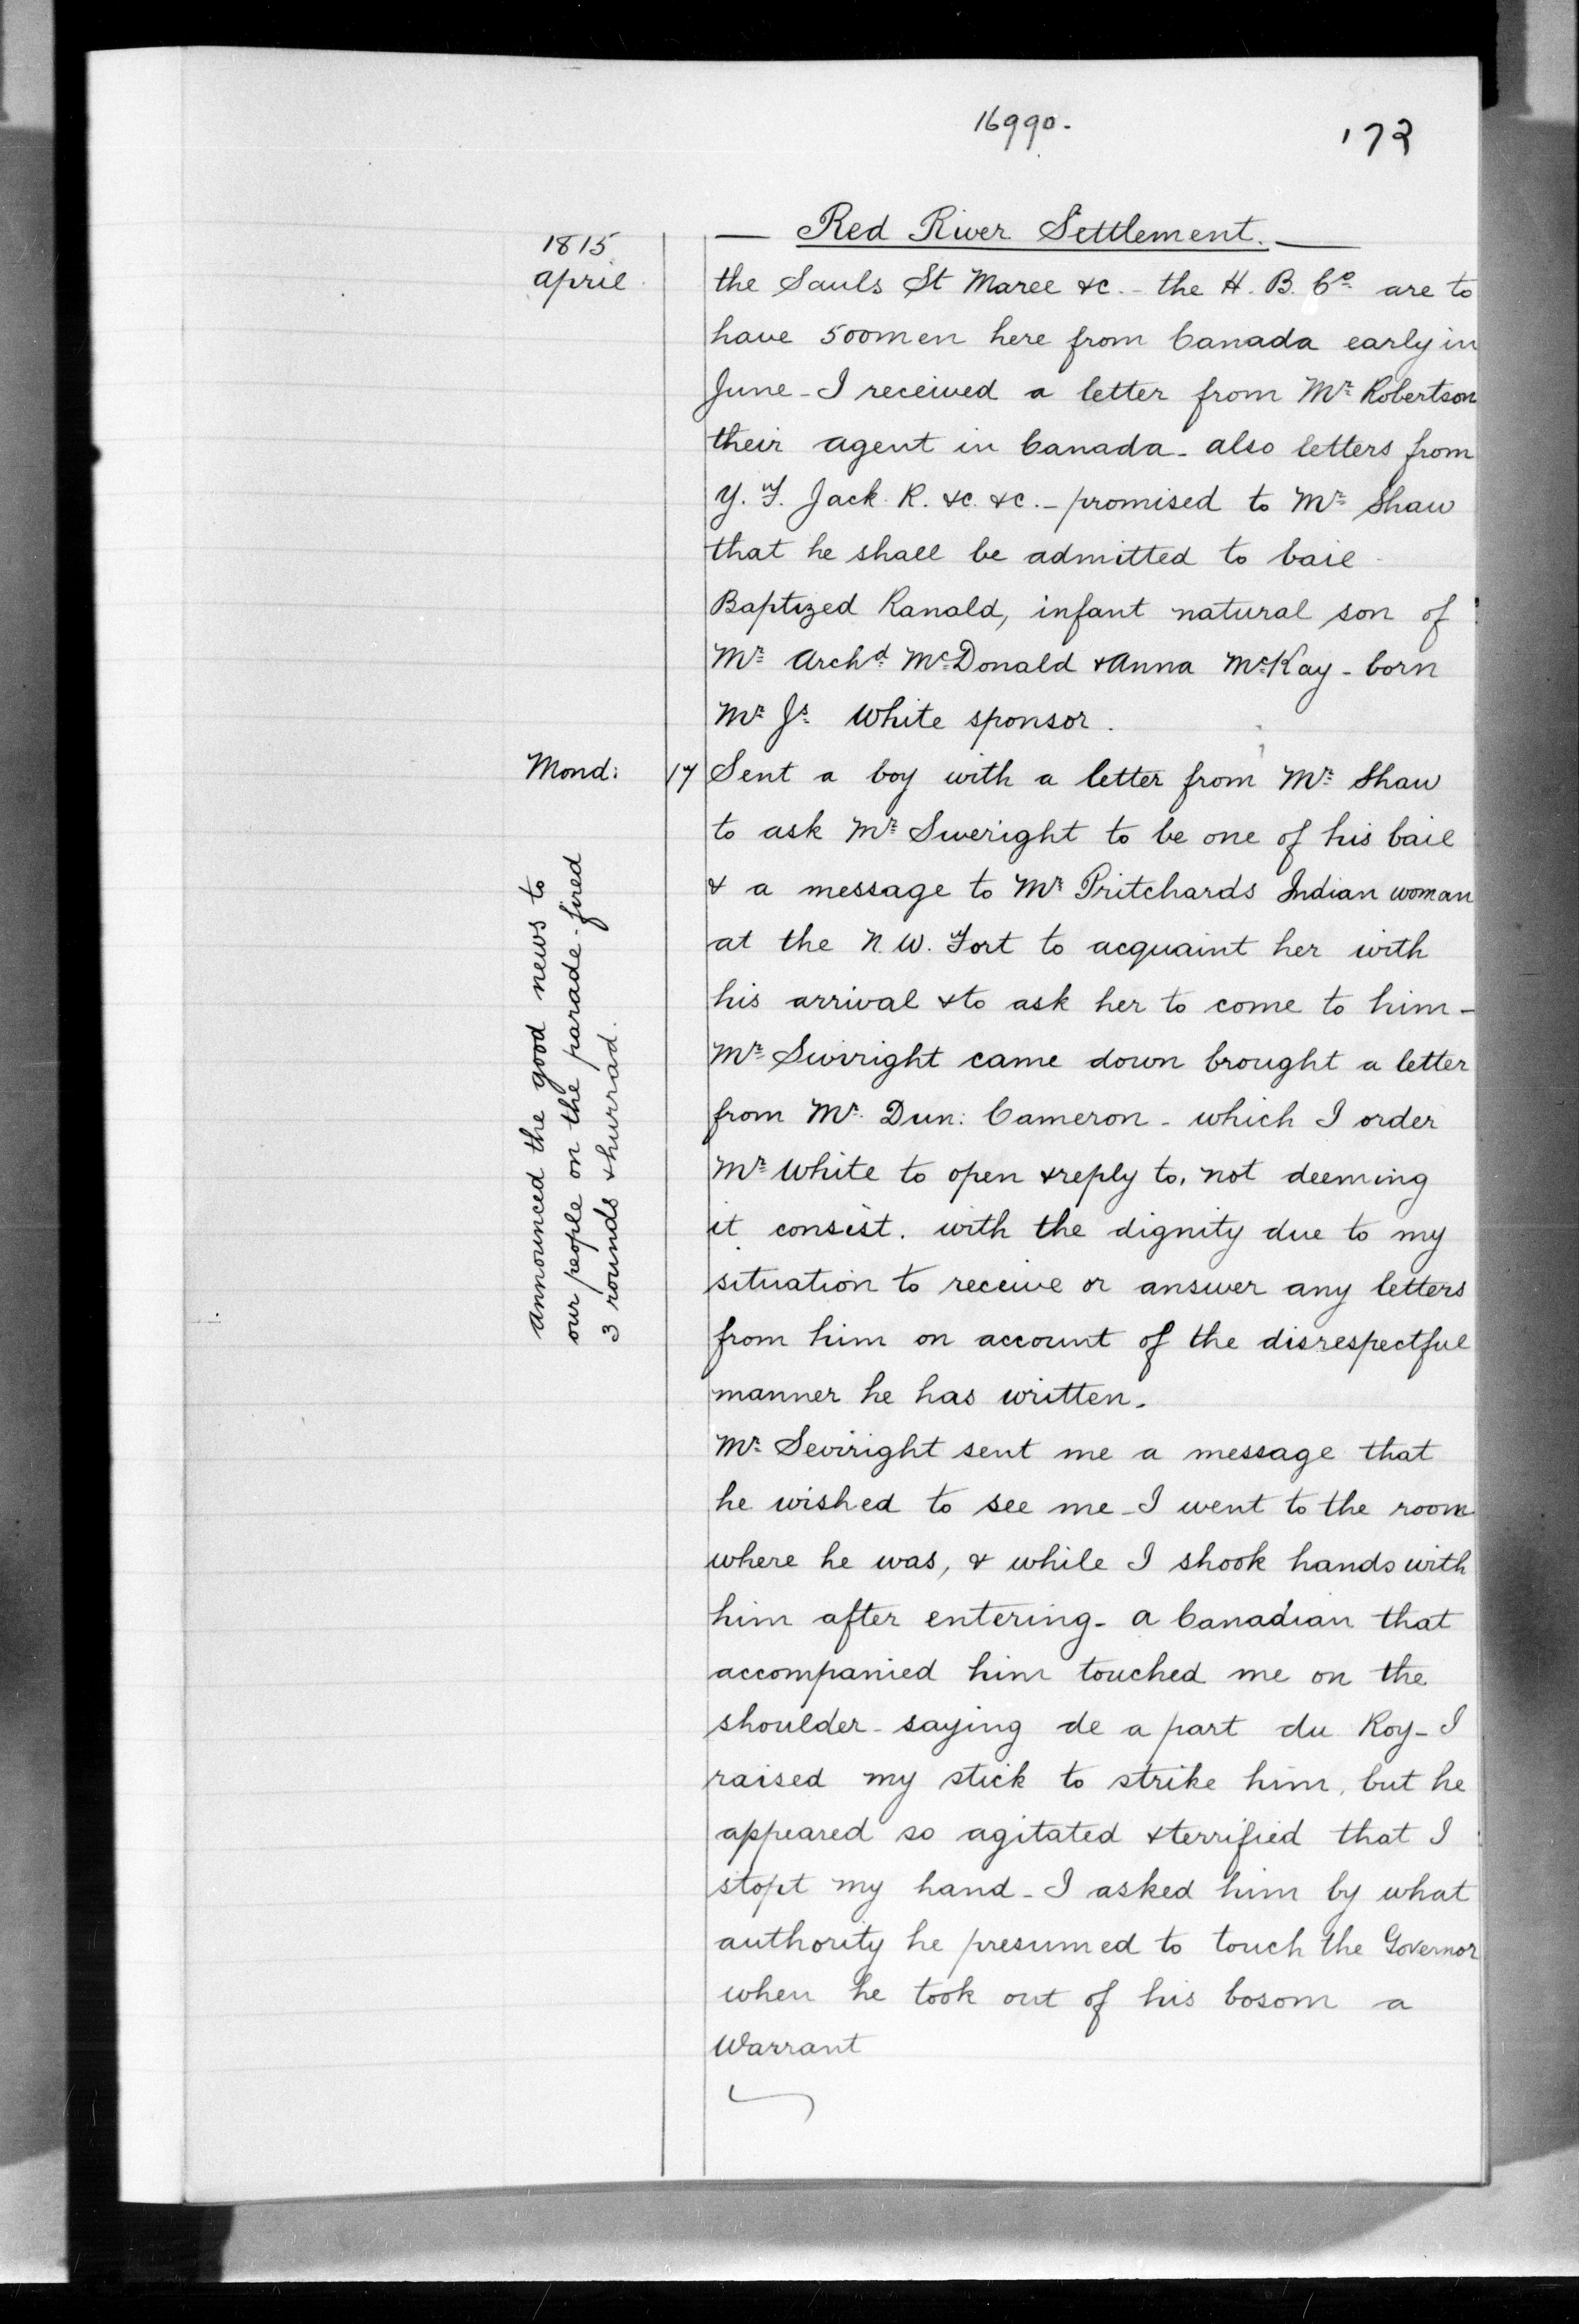 16990.
173
— Red River Settlement. —
1815
April
the Sauls St Maree &c. - the H. B. Co. are to
have 500 men here from Canada early in
June - I received a letter from Mr. Robertson
their agent in Canada - also letters from
Y. F. Jack R. &c. &c. - promised to Mr. Shaw
that he shall be admitted to bail -
Baptized Ranald, infant natural son of
Mr. Archd. McDonald & Anna McKay - born
Mr. Js. White sponsor.
Mond: 17 Sent a boy with a letter from Mr. Shaw
to ask Mr. Sweright to be one of his bail
& a message to Mr. Pritchards Indian woman
at the N. W. Fort to acquaint her with
his arrival & to ask her to come to him -
Mr. Swiright came down brought a letter
from Mr. Dun: Cameron - which I order
Mr. White to open & reply to, not deeming
it consist. with the dignity due to my
situation to receive or answer any letters
from him on account of the disrespectful
manner he has written.
announced the good news to
our people on the parade - fired
3 rounds & hurrad.
Mr. Seviright sent me a message that
he wished to see me - I went to the room
where he was, & while I shook hands with
him after entering - a Canadian that
accompanied him touched me on the
shoulder - saying de a part du Roy - I
raised my stick to strike him, but he
appeared so agitated & terrified that I
stopt my hand - I asked him by what
authority he presumed to touch the Governor
when he took out of his bosom a
Warrant